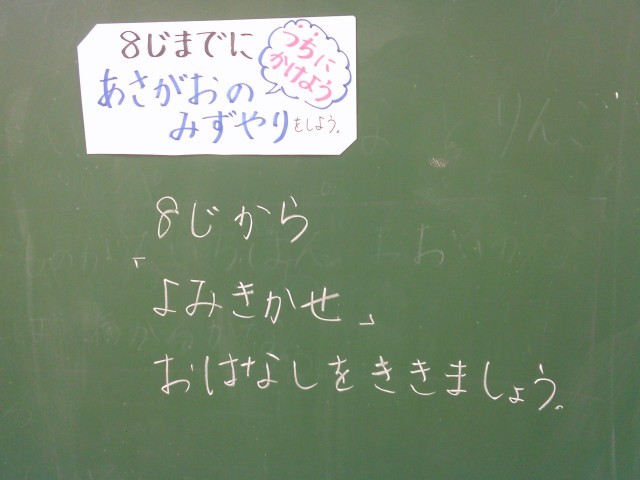 8じまでに
つちに
かけよう
あさがおの
みずやりをしよう。
8じから
「よみきかせ」
おはなしをききましょう。